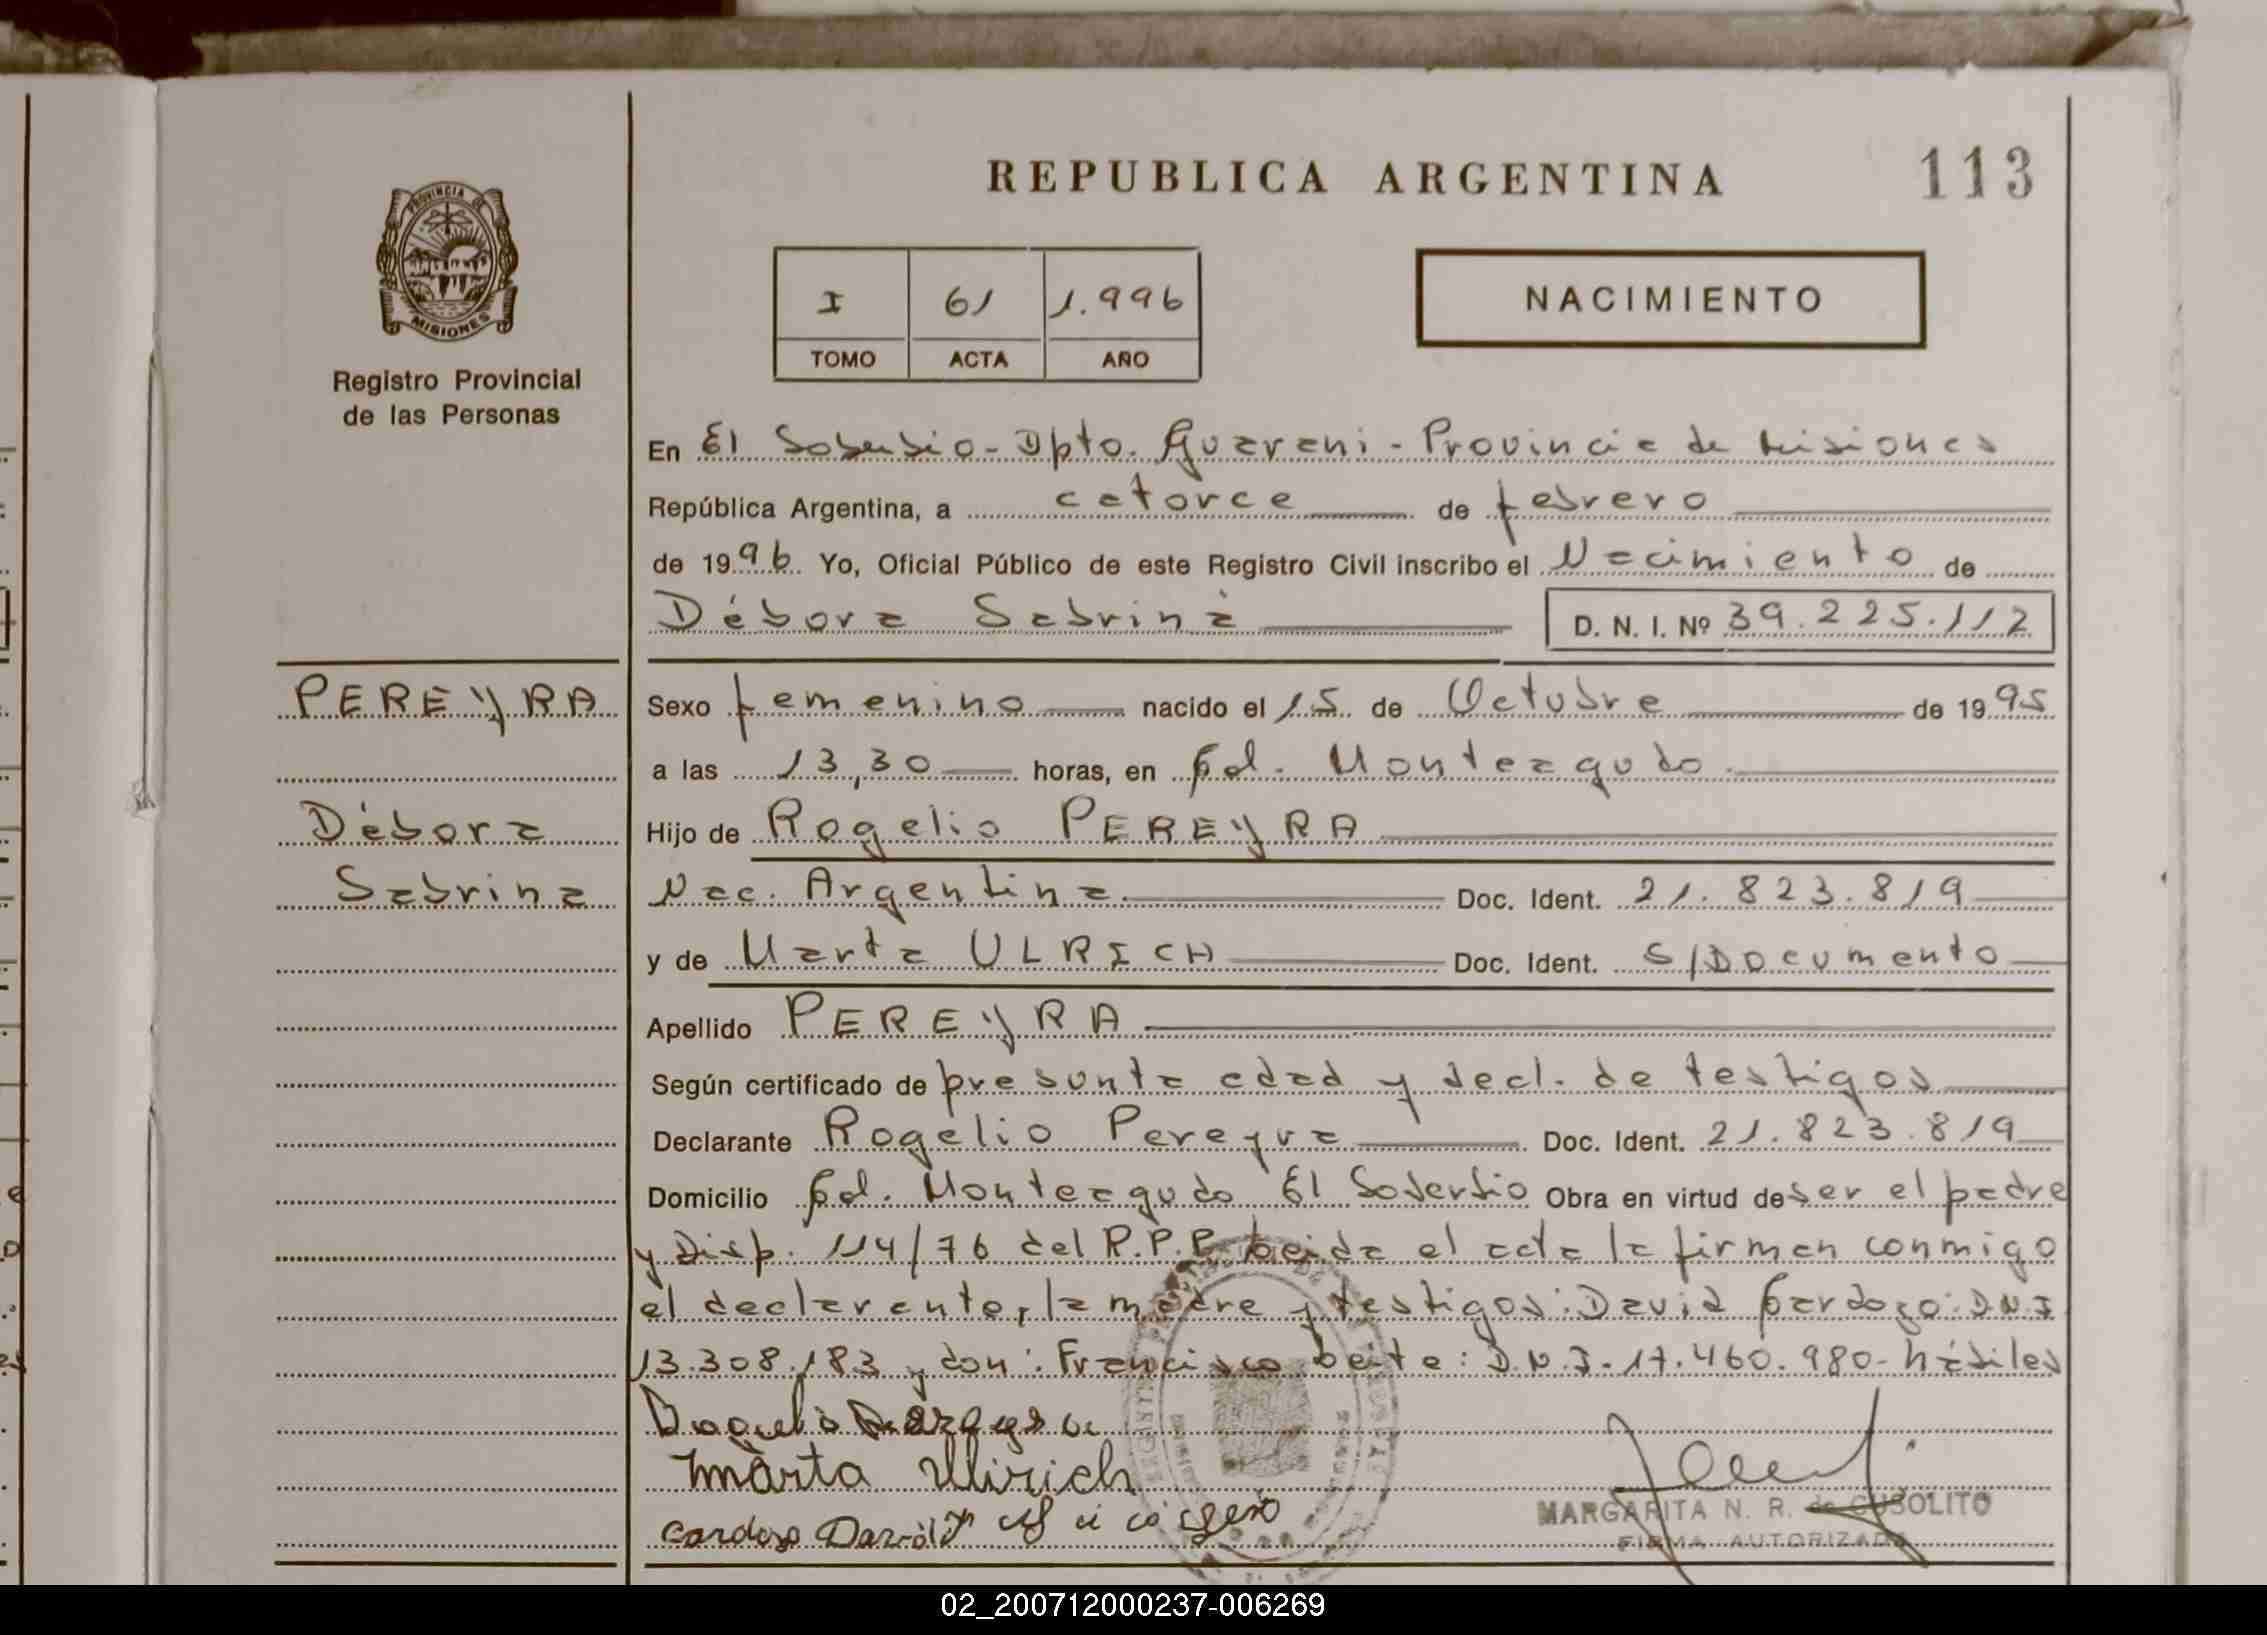 REPUBLICA ARGENTINA
113
PROVINCIA DE
MISIONES
Registro Provincial
de las Personas
I 61 1.996
TOMO ACTA AÑO
NACIMIENTO
En El Soberbio - Dpto. Guarani - Provincia de Misiones
República Argentina, a catorce de febrero
de 1996 Yo, Oficial Público de este Registro Civil inscribo el Nacimiento de
Débora Sabrina D. N. I. Nº 39.225.112
PEREYRA
Débora
Sabrina
Sexo femenino nacido el 15 de Octubre de 1995
a las 13,30 horas, en Col. Monteagudo
Hijo de Rogelio PEREYRA
Nac. Argentina Doc. Ident. 21.823.819
y de Marta ULRICH Doc. Ident. S/Documento
Apellido PEREYRA
Según certificado de presunta edad y decl. de testigos
Declarante Rogelio Pereyra Doc. Ident. 21.823.819
Domicilio Col. Monteagudo El Soberbio Obra en virtud de ser el padre
y Disp. 114/76 del R.P.P. Leida el acta la firman conmigo
el declarante, la madre y testigos: David Cardozo: D.N.I
13.308.183 y don: Francisco D.N.I. 17.460.980 - hábiles
Marta Ullrich
Cardozo David
MARGARITA N. R. de CUSOLITO
FIRMA AUTORIZADA
02_200712000237-006269